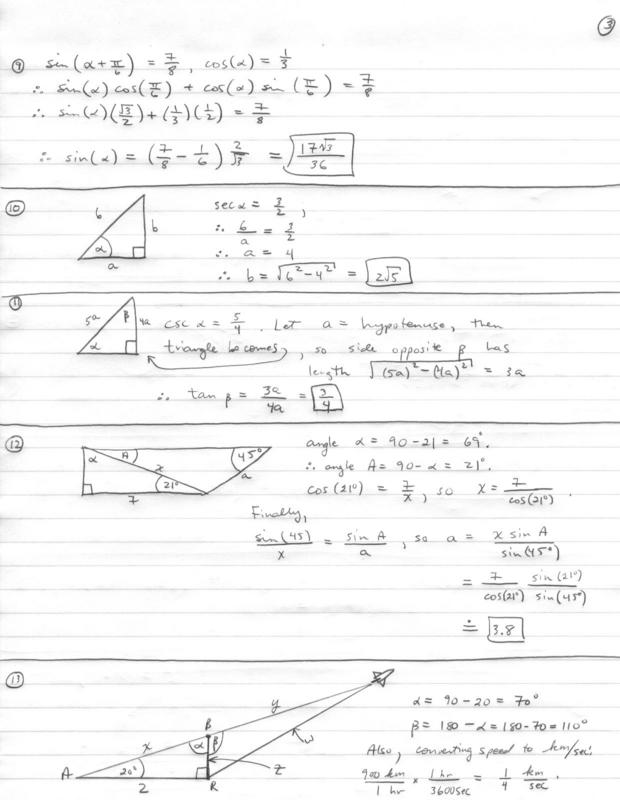 ③
⑨ sin(α + π/6) = 7/8, cos(α) = 1/3
∴ sin(α) cos(π/6) + cos(α) sin(π/6) = 7/8
∴ sin(α)(√3/2) + (1/3)(1/2) = 7/8
∴ sin(α) = (7/8 - 1/6) 2/√3 = 17√3/36
⑩ 6 b α a
sec α = 3/2,
∴ 6/a = 3/2
∴ a = 4
∴ b = √(6² - 4²) = 2√5
⑪ 5a β 4a α
csc α = 5/4. Let a = hypotenuse, then
triangle becomes, so side opposite β has
length √((5a)² - (4a)²) = 3a
∴ tan β = 3a/4a = 3/4
⑫ α A x 45° a 21° 7
angle α = 90 - 21 = 69°.
∴ angle A = 90 - α = 21°.
cos(21°) = 7/x, so x = 7/cos(21°).
Finally,
sin(45)/x = sin A/a, so a = x sin A/sin(45°)
= 7/cos(21°) sin(21°)/sin(45°)
≐ 3.8
⑬ y B x α β w A 20° z 2 R
α = 90 - 20 = 70°
β = 180 - α = 180 - 70 = 110°
Also, converting speed to km/sec:
900 km/1 hr × 1 hr/3600 sec = 1/4 km/sec.